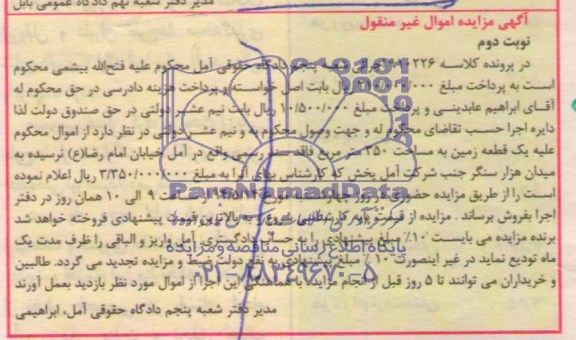 مدیر دفتر شعبه نهم دادگاه عمومی بابل
آگهی مزایده اموال غیر منقول
نوبت دوم
در پرونده کلاسه شعبه پنجم دادگاه حقوقی آمل محکوم علیه فتح‌الله بیشمی محکوم
است به پرداخت مبلغ ریال بابت اصل خواسته و پرداخت هزینه دادرسی در حق محکوم له
آقای ابراهیم عابدینی و پرداخت مبلغ ۱۰/۵۰۰/۰۰۰ ریال بابت نیم عشر دولتی در حق صندوق دولت لذا
دایره اجرا حسب تقاضای محکوم له و جهت وصول محکوم به و نیم عشر دولتی در نظر دارد از اموال محکوم
علیه یک قطعه زمین به مساحت ۲۵۰ متر مربع فاقد سند رسمی واقع در آمل خیابان امام رضا(ع) نرسیده به
میدان هزار سنگر جنب شرکت آمل پخش که کارشناس بهای آنرا به مبلغ ۳/۳۵۰/۰۰۰/۰۰۰ ریال اعلام نموده
است را از طریق مزایده حضوری در روز چهارشنبه مورخ از ساعت ۹ الی ۱۰ همان روز در دفتر
اجرا بفروش برساند . مزایده از قیمت پایه کارشناسی شروع و به بالاترین قیمت پیشنهادی فروخته خواهد شد
برنده مزایده می بایست ۱۰٪ مبلغ پیشنهادی را به حساب دادگستری آمل واریز و الباقی را ظرف مدت یک
ماه تودیع نماید در غیر اینصورت ۱۰٪ مبلغ پیشنهادی به نفع دولت ضبط و مزایده تجدید می گردد. طالبین
و خریداران می توانند تا ۵ روز قبل از انجام مزایده با هماهنگی این اجرا از اموال مورد نظر بازدید بعمل آورند
مدیر دفتر شعبه پنجم دادگاه حقوقی آمل، ابراهیمی
ParsNamadData
پایگاه اطلاع رسانی مناقصه و مزایده
۰۲۱-۸۸۳۴۹۶۷۰-۵